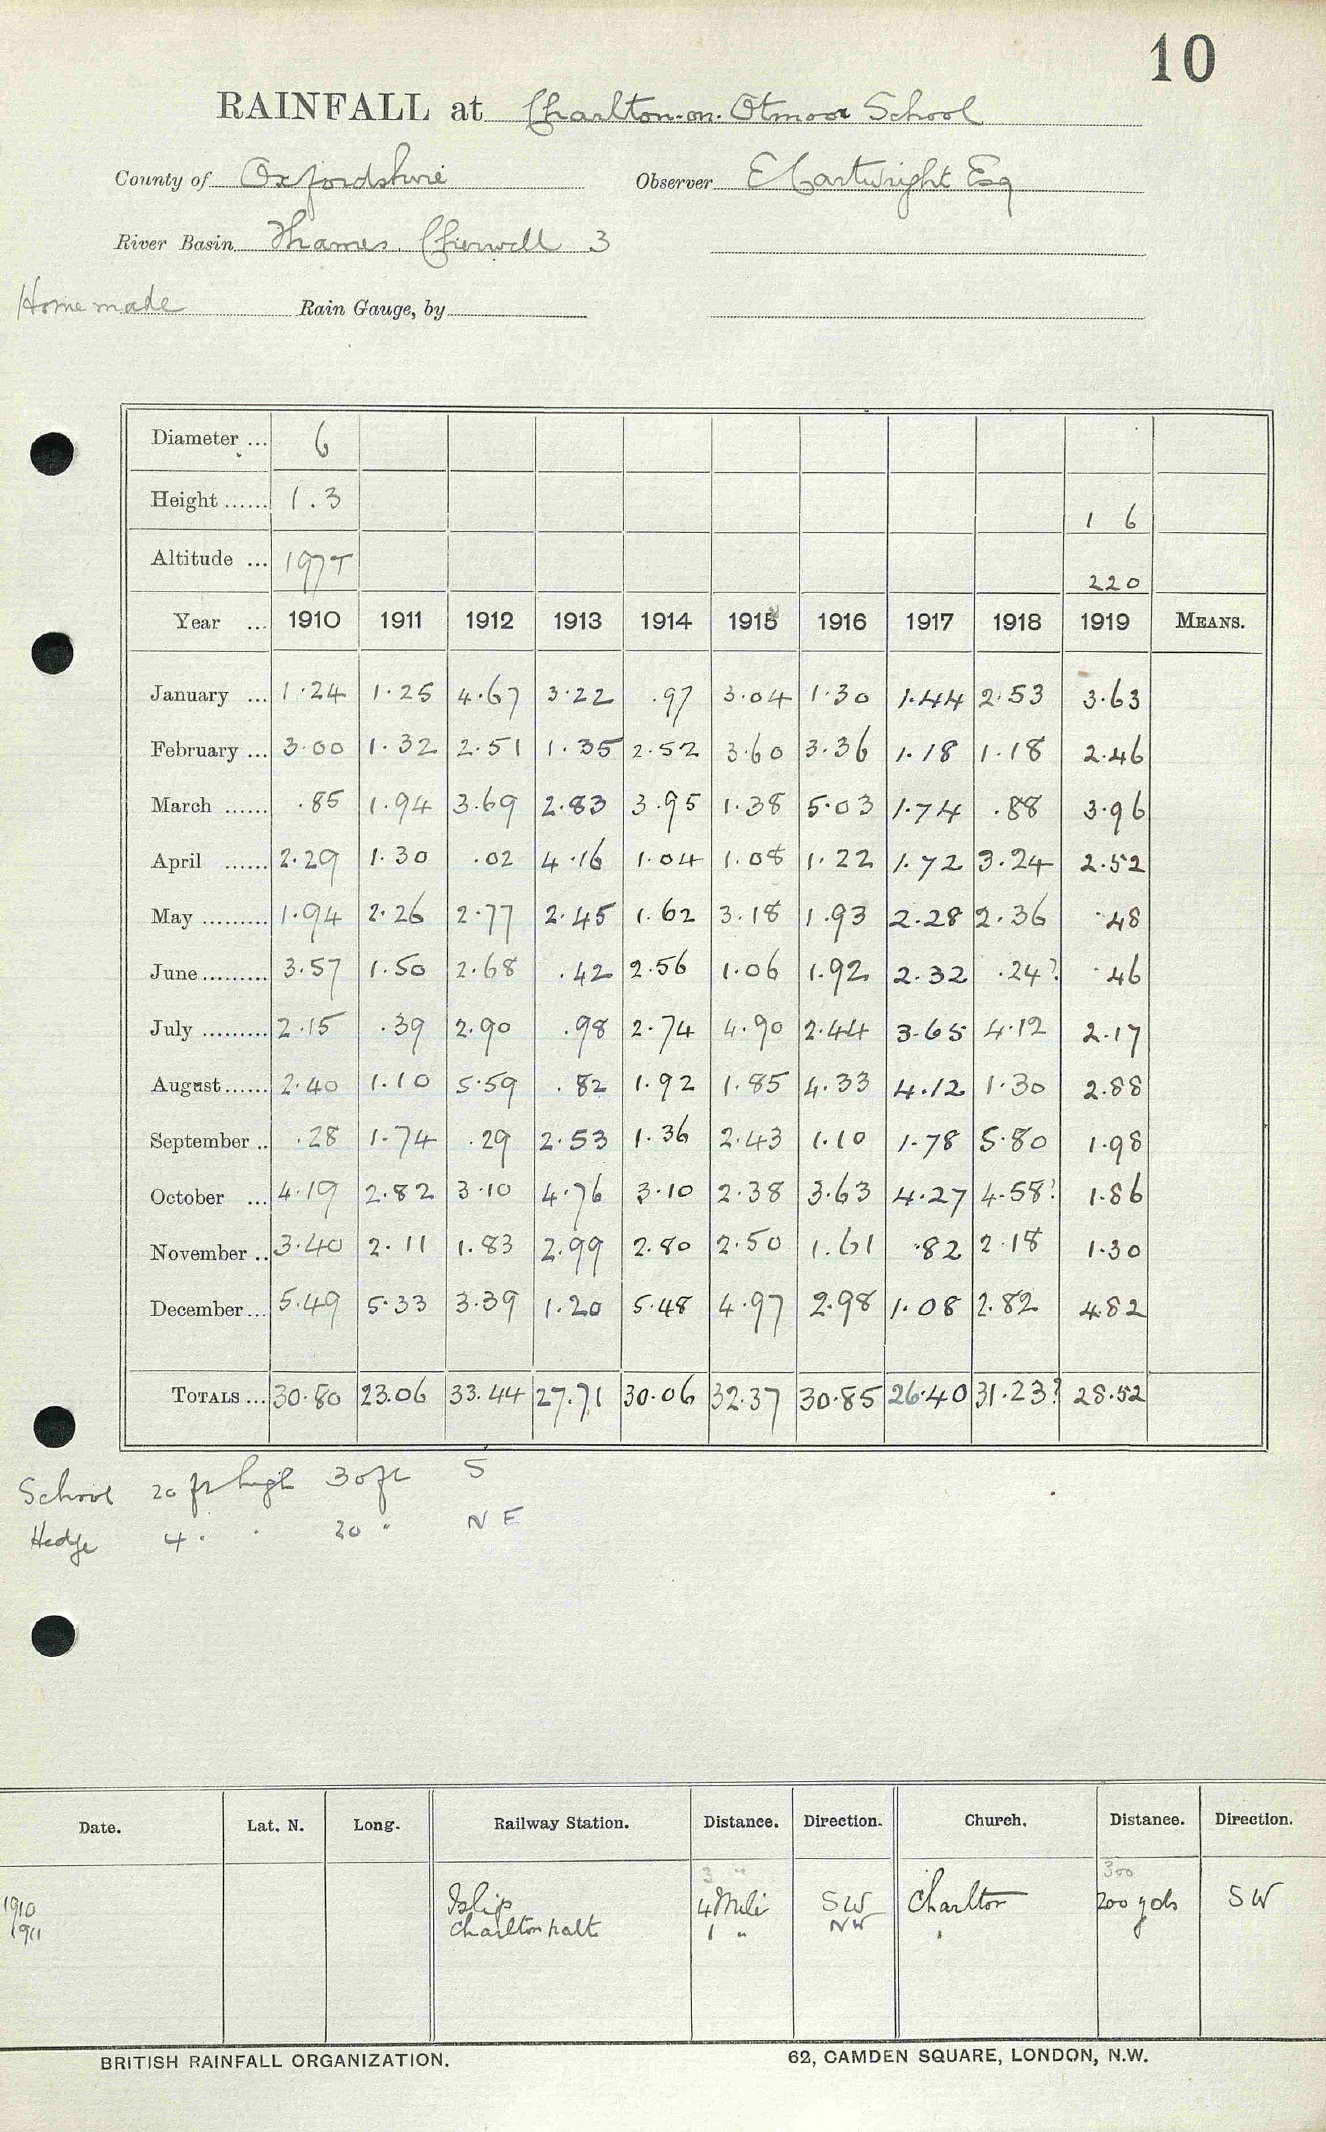 10
RAINFALL at Charlton-on-Otmoor School
County of Oxfordshire Observer E Cartwright Esq
River Basin Thames Cherwell 3
Home made Rain Gauge, by
Diameter ... 6
Height ...... 1.3 1 6
Altitude ... 197T 220
Year ... 1910 1911 1912 1913 1914 1915 1916 1917 1918 1919 MEANS.
January ... 1.24 1.25 4.67 3.22 .97 3.04 1.30 1.44 2.53 3.63
February ... 3.00 1.32 2.51 1.35 2.52 3.60 3.36 1.18 1.18 2.46
March ...... .85 1.94 3.69 2.83 3.95 1.38 5.03 1.74 .88 3.96
April ...... 2.29 1.30 .02 4.16 1.04 1.08 1.22 1.72 3.24 2.52
May ......... 1.94 2.26 2.77 2.45 1.62 3.18 1.93 2.28 2.36 .48
June ......... 3.57 1.50 2.68 .42 2.56 1.06 1.92 2.32 .24? .46
July ......... 2.15 .39 2.90 .98 2.74 4.90 2.44 3.65 4.12 2.17
August ...... 2.40 1.10 5.59 .82 1.92 1.85 4.33 4.12 1.30 2.88
September .. .28 1.74 .29 2.53 1.36 2.43 1.10 1.78 5.80 1.98
October ... 4.19 2.82 3.10 4.76 3.10 2.38 3.63 4.27 4.58? 1.86
November .. 3.40 2.11 1.83 2.99 2.80 2.50 1.61 .82 2.18 1.30
December ... 5.49 5.33 3.39 1.20 5.48 4.97 2.98 1.08 2.82 4.82
TOTALS ... 30.80 23.06 33.44 27.71 30.06 32.37 30.85 26.40 31.23? 28.52
School 20 ft high 30 ft S
Hedge 4 " " 20 " N E
Date. Lat. N. Long. Railway Station. Distance. Direction. Church. Distance. Direction.
3 " 300
1910 Islip 4 Mile SW Charlton 200 yds SW
1911 Charlton halt 1 " NW "
BRITISH RAINFALL ORGANIZATION. 62, CAMDEN SQUARE, LONDON, N.W.